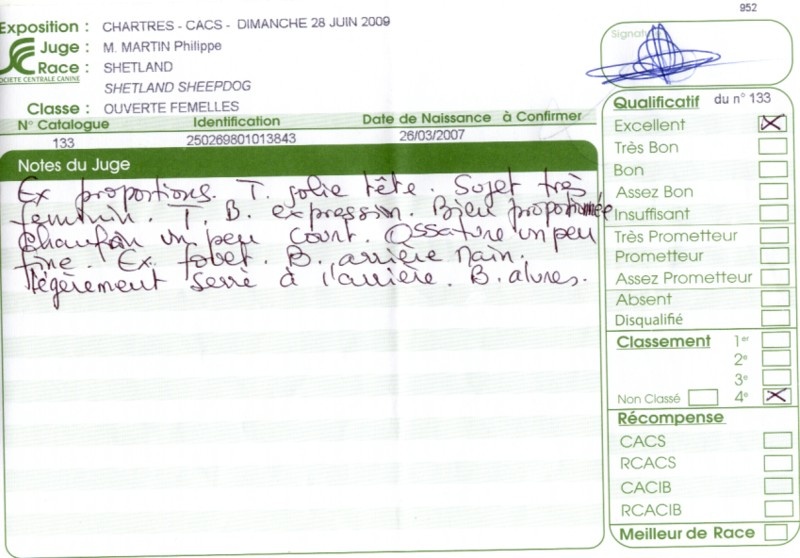 952
Exposition : CHARTRES - CACS - DIMANCHE 28 JUIN 2009
Juge : M. MARTIN Philippe
Race : SHETLAND
SOCIETE CENTRALE CANINE
SHETLAND SHEEPDOG
Classe : OUVERTE FEMELLES
N° Catalogue Identification Date de Naissance à Confirmer
133 250269801013843 26/03/2007
Notes du Juge
Ex proportions. T. jolie tête. Sujet très
féminin. T. B. expression. Bien proportionnée
Chanfrein un peu court. Ossature un peu
fine. Ex. fouet. B. arrière main.
légèrement serré à l'arrière. B. alures.
Signature
Qualificatif du n° 133
Excellent
Très Bon
Bon
Assez Bon
Insuffisant
Très Prometteur
Prometteur
Assez Prometteur
Absent
Disqualifié
Classement 1er
2e
3e
Non Classé 4e
Récompense
CACS
RCACS
CACIB
RCACIB
Meilleur de Race